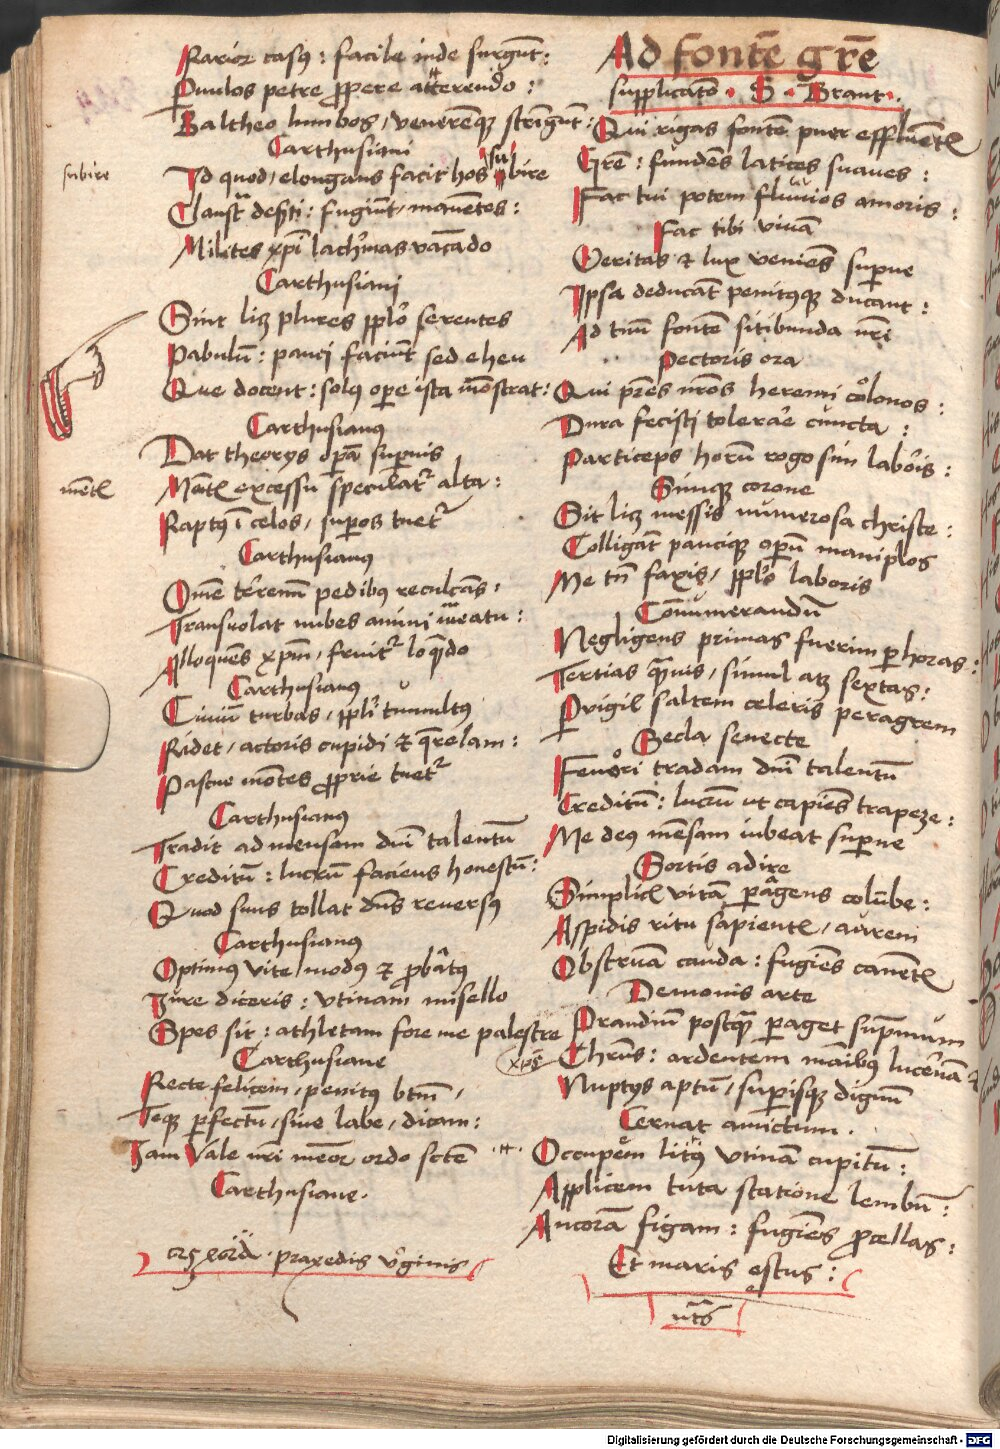 Rarior casꝰ : facile inde surgūt:
Paruulos petre ꝓpere atterendo :
Baltheo lumbos, venerēqꝫ strīgūt :
Carthusiani
Id quod, elongans facit hos subire
subire
Claustra deserti : fugiūt, manētes :
Milites xp̄i lachrimas vacādo
Carthusiani
Sint licꝫ plures pplō ferentes
Pabulū : pauci faciūt sed eheu
Que docent : solꝰ ope ista mōstrat :
Carthusianꝰ
Dat theorijs opā supnis
mētꝭ
Mētꝭ excessu speculat᷑ alta :
Raptꝰ ī celos, supos tuet᷑
Carthusianꝰ
Om̄e terrenū pedibꝰ reculcās :
Transuolat nubes animi meatu :
Alloquēs xpm̄, fruit᷑ loquēdo
Carthusianꝰ
Ciuiū turbas, ppli tumultꝰ
Ridet, actoris cupidi & q̄relam :
Pascue mōtes ꝓprie tuet᷑
Carthusianꝰ
Tradit ad mensam dn̄i talentū
Creditū : lucrū faciens honestū :
Quod suus tollat dn̄s reuersꝰ
Carthusianꝰ
Optimꝰ vite, modꝰ & ꝓbatꝰ
Jure diceris : vtinam misello
Spes sit : athletam fore me palestre
Carthusiane
xp̄s
Recte felicem, penitꝰ btm̄,
Teqꝫ pfectū, sine labe, dicam :
Jam Vale nr̄i memor ordo sctē
Carthusiane.
praxedis v̓ginis
Ad fontē grē
supplicatō · S · Brant ·
Qui rigas fontē puer effluētꝭ
Grē : fundēs latices suaues :
Fac tui potem fluuios amoris :
Fac tibi viuā
Veritas & lux veniēs supne
Ipsa deducāt penitꝰqꝫ ducant :
Ad tuū fontē sitibunda nr̄i
Pectoris ora
Qui pr̄es nr̄os heremi colonos :
Dura fecisti tolerare cuncta :
Particeps horū rogo sim laboris :
Simqꝫ corone
Sit licꝫ messis numerosa christe :
Colligāt pauciqꝫ opū maniplos
Me tn̄ faxis, ppl̄s laboris
Connumerandū
Negligens primas fuerim p horas :
Tertias quāuis, simul atqꝫ sextas :
Puigil saltem celeris peragrem
Secla senecte
Fenori tradam dn̄i talentū
Creditū : lucrū vt capiēs trapeze :
Me deꝰ mēsam iubeat supne
Sortis adire
Simplicꝭ vitā pagens colūbe :
Aspidis ritu sapientꝭ, aurem
Obstruā cauda : fugiēs canētꝭ
Demonis arte
Prandiū postquā paget supmum
Christꝰ : ardentem manibꝰ lucernā &
Nuptijs aptū, supisqꝫ dignū
Cernat amictum.
Occupem litꝰ vtinā cupitū :
Applicem tuta statione lembū :
Ancorā figam : fugiēs ꝓcellas :
Et maris estus :
Digitalisierung gefördert durch die Deutsche Forschungsgemeinschaft - DFG